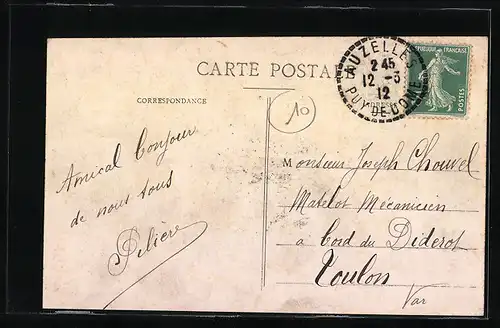 CARTE POSTALE
AUZELLES
2 45
12 - 3
12
PUY-DE-DOME
REPUBLIQUE FRANÇAISE
POSTES
CORRESPONDANCE
10
Amical bonjour
de nous tous
Pilière
Monsieur Joseph Chouvel
Matelot Mécanicien
a bord du Diderot
Toulon
Var